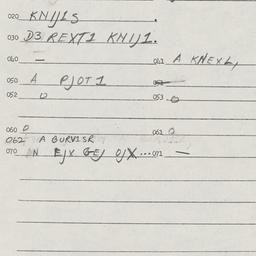 020 KNIJIS .
030 D3 REXT1 KNIJ1.
040 — 041 A KNEXL,
050 A PJOT1 051
052 O 053 O
060 O 061 O
062 A GURVISR
070 AN EJX GEJ OJX...071 —